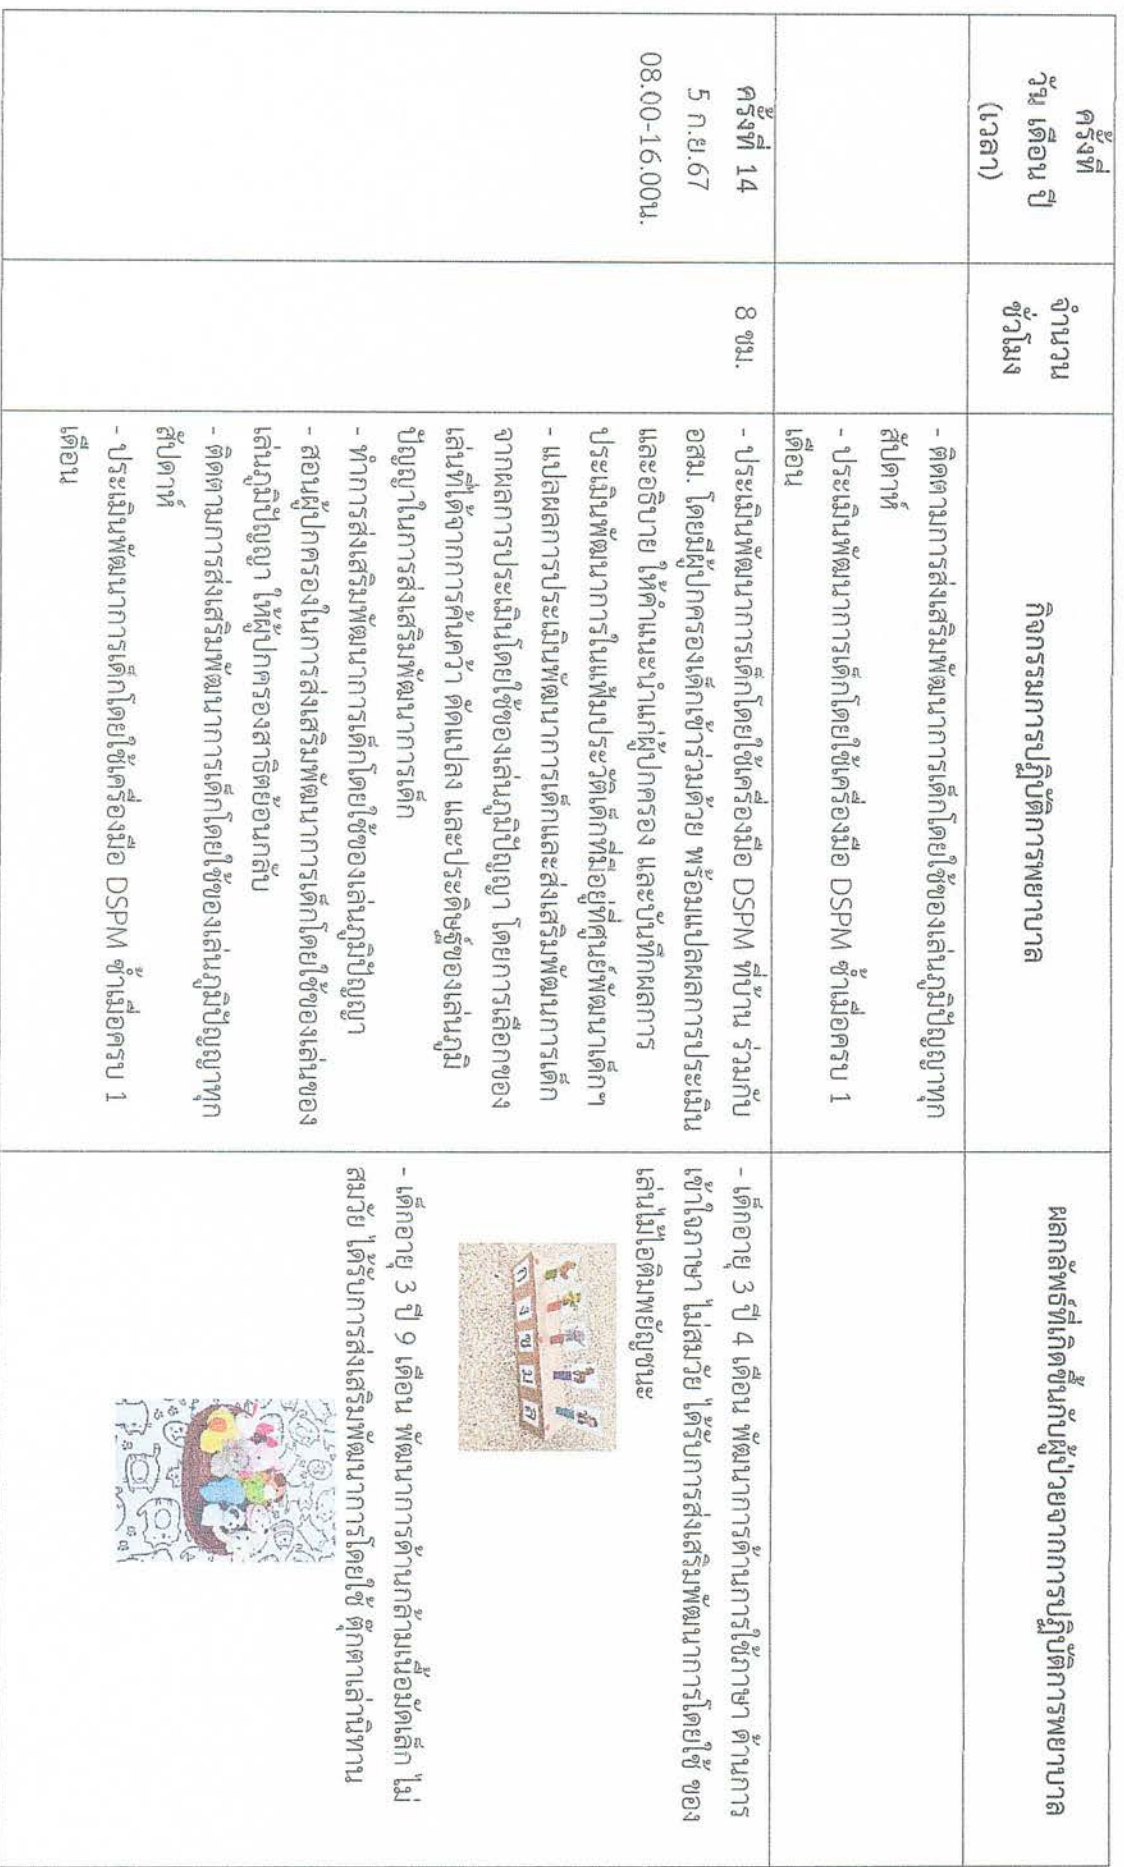 ครั้งที่
วัน เดือน ปี
(เวลา)
จำนวน
ชั่วโมง
กิจกรรมการปฏิบัติการพยาบาล
ผลลัพธ์ที่เกิดขึ้นกับผู้ป่วยจากการปฏิบัติการพยาบาล
- ติดตามการส่งเสริมพัฒนาการเด็กโดยใช้ของเล่นภูมิปัญญาทุก
สัปดาห์
- ประเมินพัฒนาการเด็กโดยใช้เครื่องมือ DSPM ซ้ำเมื่อครบ 1
เดือน
ครั้งที่ 14
5 ก.ย.67
08.00-16.00น.
8 ชม.
- ประเมินพัฒนาการเด็กโดยใช้เครื่องมือ DSPM ที่บ้าน ร่วมกับ
อสม. โดยมีผู้ปกครองเด็กเข้าร่วมด้วย พร้อมแปลผลการประเมิน
และอธิบาย ให้คำแนะนำแก่ผู้ปกครอง และบันทึกผลการ
ประเมินพัฒนาการในแฟ้มประวัติเด็กที่มีอยู่ที่ศูนย์พัฒนาเด็กฯ
- แปลผลการประเมินพัฒนาการเด็กและส่งเสริมพัฒนาการเด็ก
จากผลการประเมินโดยใช้ของเล่นภูมิปัญญา โดยการเลือกของ
เล่นที่ได้จากการค้นคว้า ดัดแปลง และประดิษฐ์ของเล่นภูมิ
ปัญญาในการส่งเสริมพัฒนาการเด็ก
- ทำการส่งเสริมพัฒนาการเด็กโดยใช้ของเล่นภูมิปัญญา
- สอนผู้ปกครองในการส่งเสริมพัฒนาการเด็กโดยใช้ของเล่นของ
เล่นภูมิปัญญา ให้ผู้ปกครองสาธิตย้อนกลับ
- ติดตามการส่งเสริมพัฒนาการเด็กโดยใช้ของเล่นภูมิปัญญาทุก
สัปดาห์
- ประเมินพัฒนาการเด็กโดยใช้เครื่องมือ DSPM ซ้ำเมื่อครบ 1
เดือน
- เด็กอายุ 3 ปี 4 เดือน พัฒนาการด้านการใช้ภาษา ด้านการ
เข้าใจภาษา ไม่สมวัย ได้รับการส่งเสริมพัฒนาการโดยใช้ ของ
เล่นไม้ไอติมพยัญชนะ
ก ง ช ม ล
- เด็กอายุ 3 ปี 9 เดือน พัฒนาการด้านกล้ามเนื้อมัดเล็ก ไม่
สมวัย ได้รับการส่งเสริมพัฒนาการโดยใช้ ตุ๊กตาเล่านิทาน